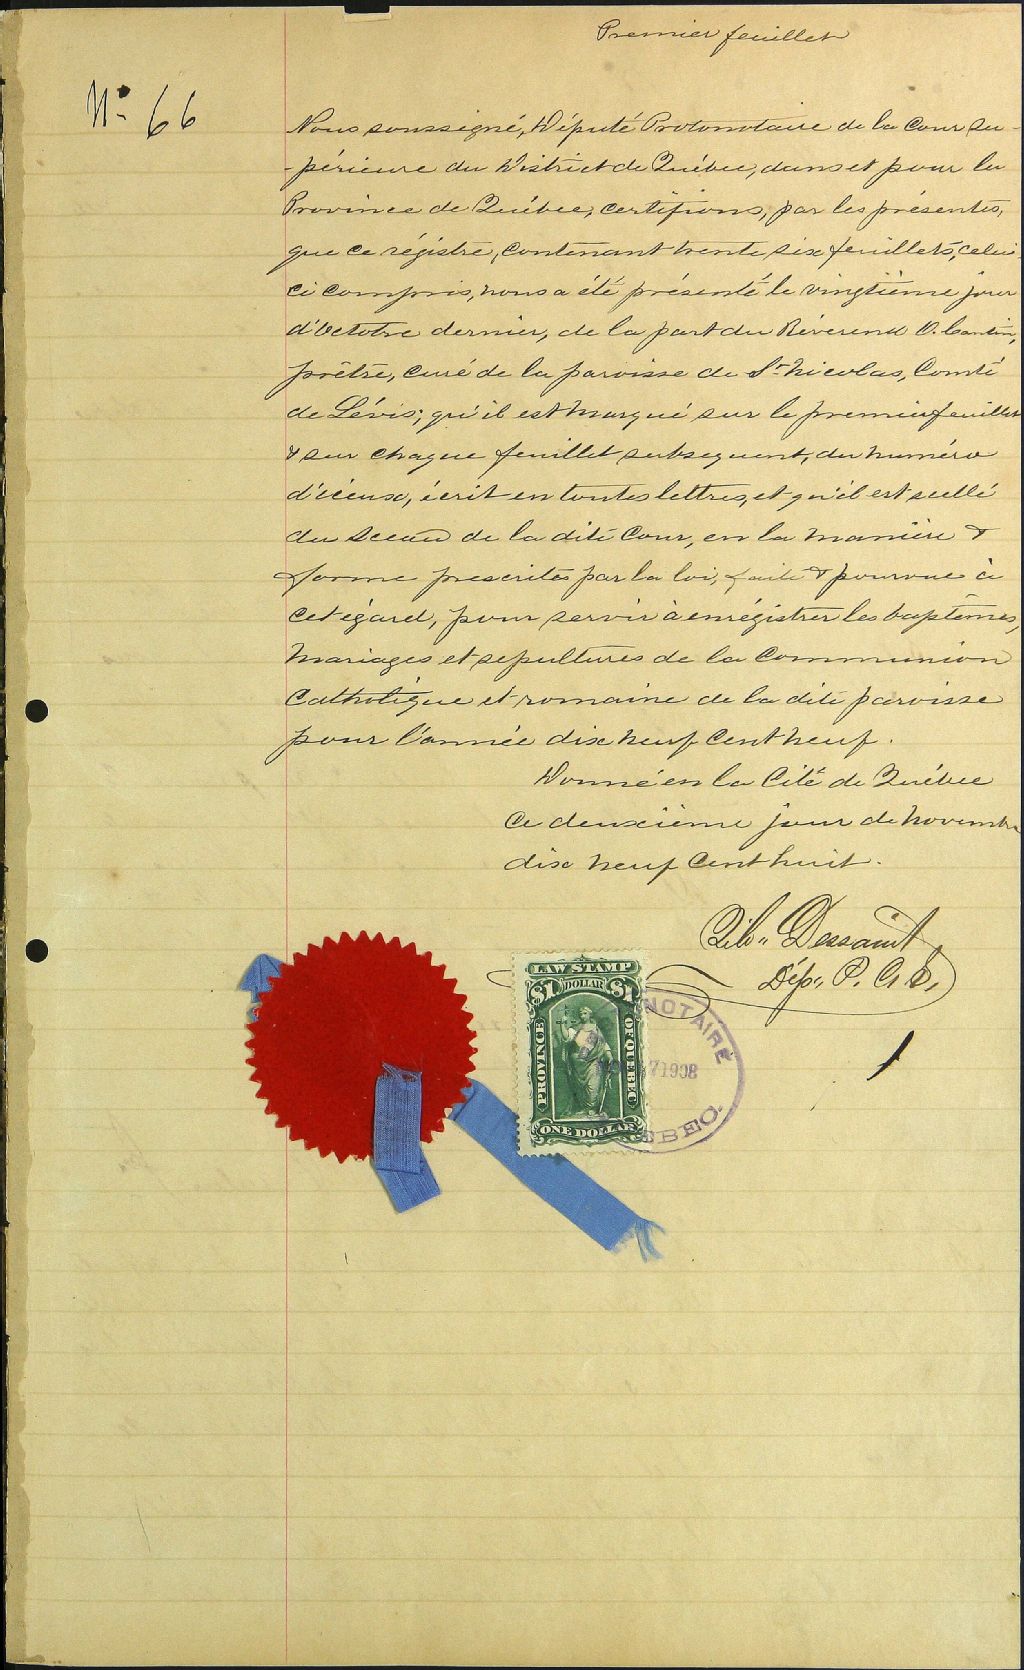 Premier feuillet
No 66
Nous soussigné, Député Protonotaire de la Cour Su-
-périeure du District de Québec, dans et pour la
Province de Québec, certifions, par les présentes,
que ce régistre, contenant trente six feuillets, celui
ci compris, nous a été présenté le vingtième jour
d'Octobre dernier, de la part du Révérend O. Cantin,
prêtre, curé de la paroisse de St Nicolas, Comté
de Lévis; qu'il est marqué sur le premier feuillet
& sur chaque feuillet subsequent, du numéro
d'iceux, écrit en toutes lettres, et qu'il est scellé
du sceau de la dite Cour, en la manière &
forme prescrites par la loi, faite & pourvue à
cet égard, pour servir à enrégistrer les baptêmes,
mariages et sepultures de la Communion
Catholique et romaine de la dite paroisse
pour l'année dix neuf cent neuf.
Donné en la Cité de Québec
ce deuxième jour de novembre
dix neuf cent huit.
Dessaint
Dép. P. C. S.
LAW STAMP
$1 DOLLAR $1
PROVINCE OF QUEBEC
ONE DOLLAR
NOTAIRE
7 1908
BEC.